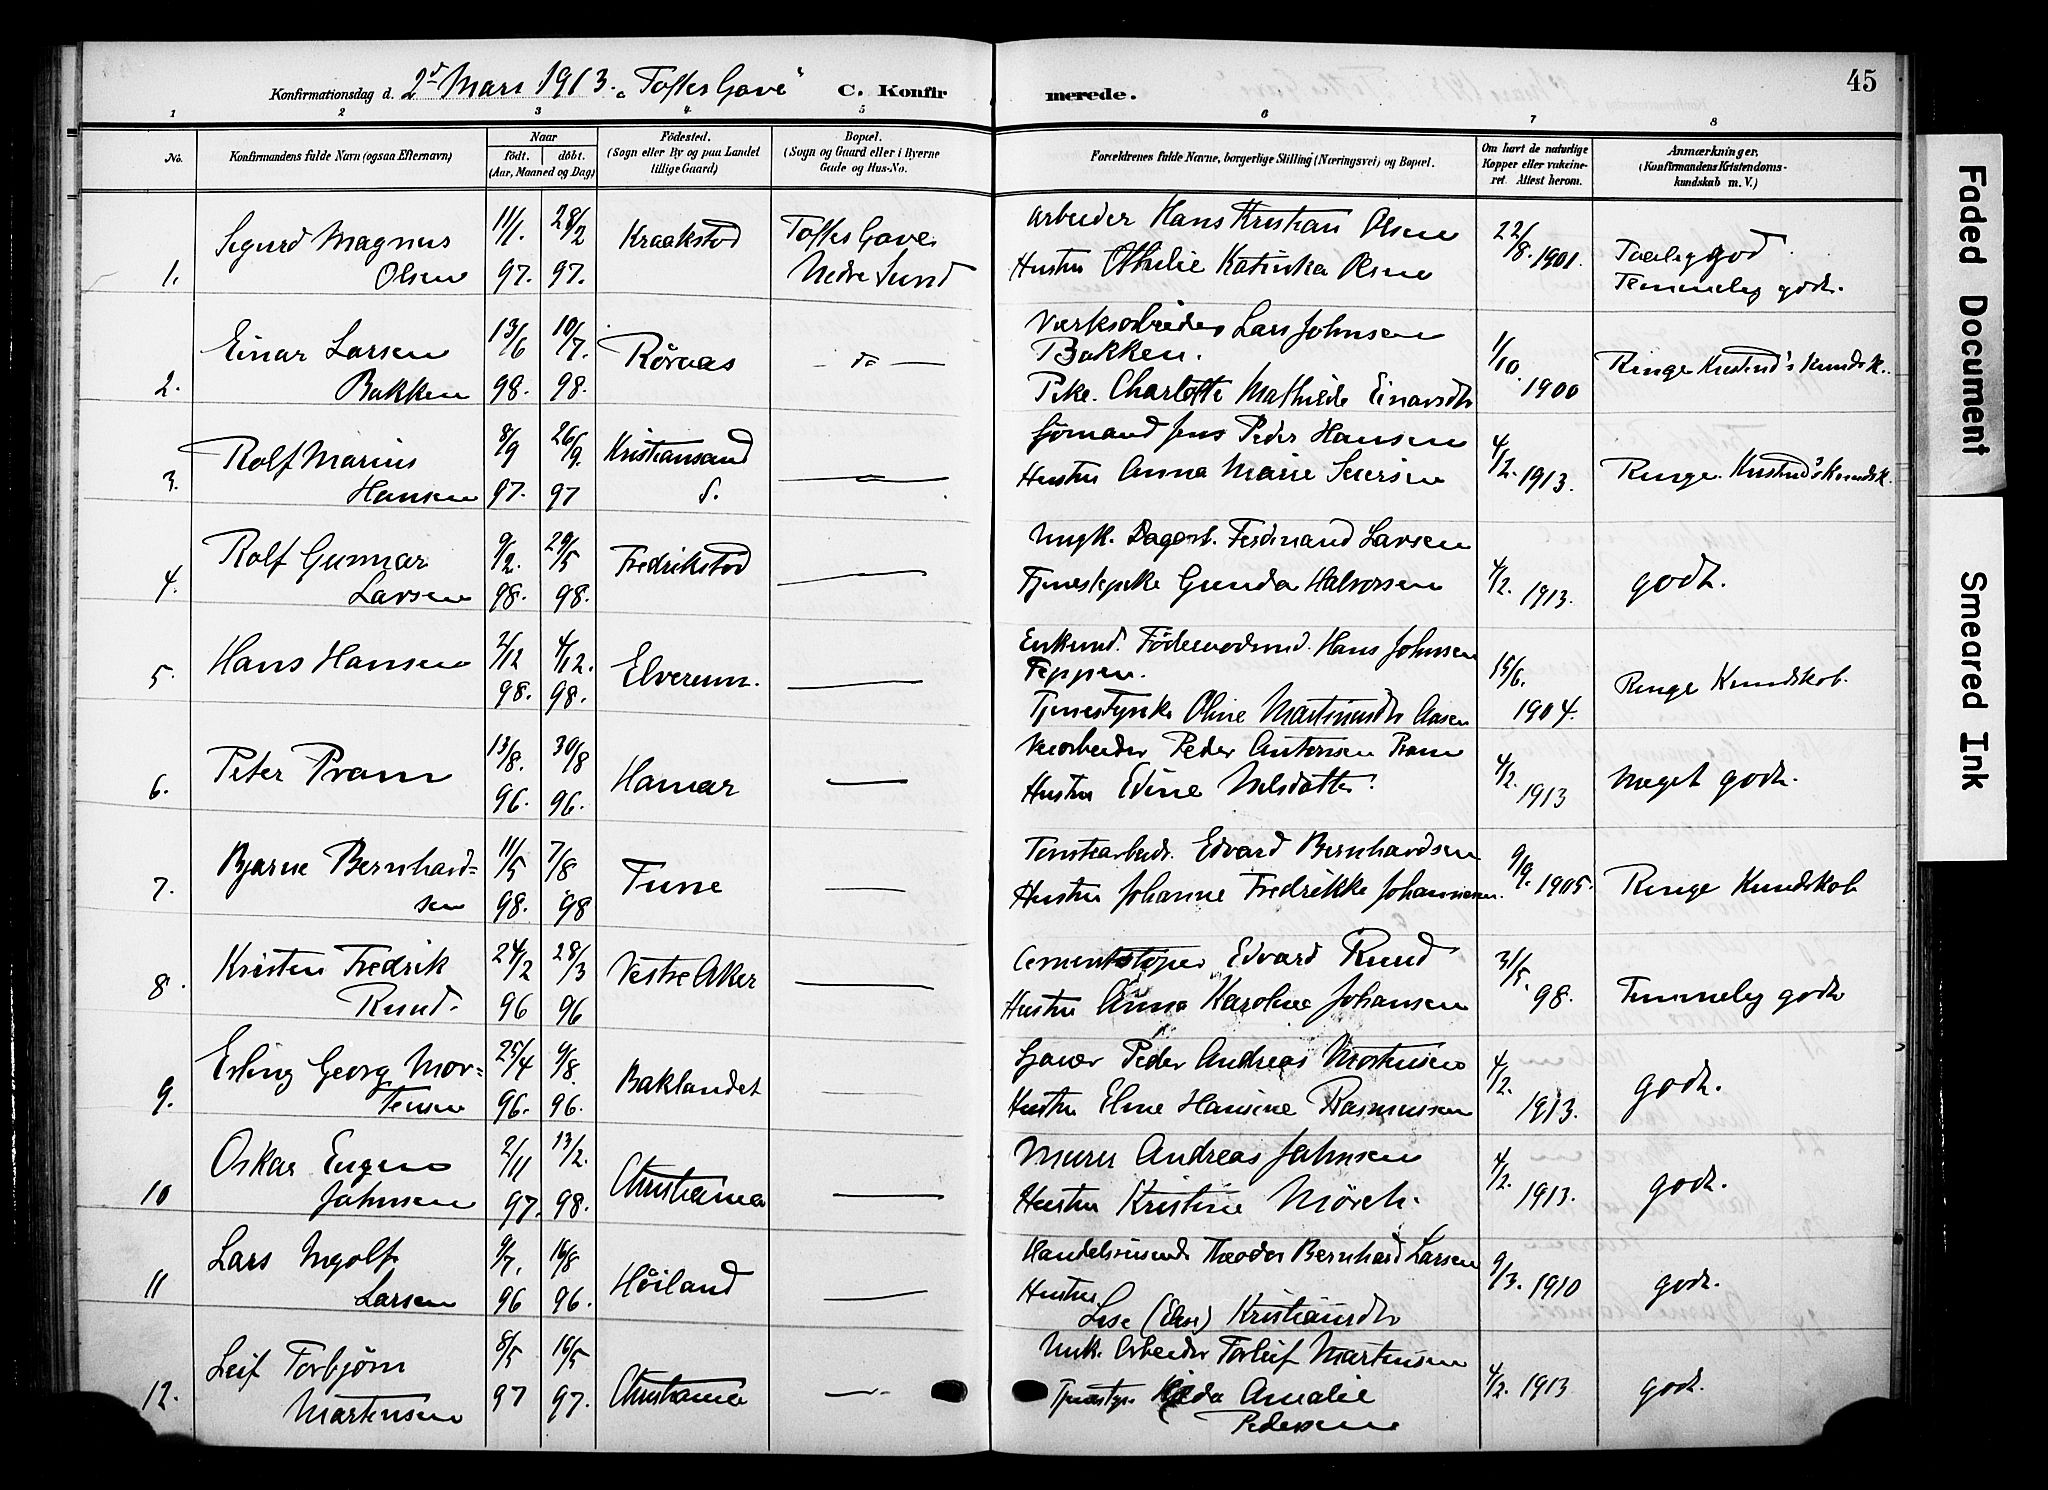 Konfirmationsdag d. 2d Mars 1913. "Toftes Gave"
C. Konfirmerede.
45
1 2 3 4 5 6 7 8
No.
Konfirmandens fulde Navn (ogsaa Efternavn)
Naar
født. døbt.
(Aar, Maaned og Dag)
Fødested.
(Sogn eller By og paa Landet
tillige Gaard)
Bopæl.
(Sogn og Gaard eller i Byerne
Gade og Hus-No.
Forældrenes fulde Navne, borgerlige Stilling (Næringsvei) og Bopæl.
Om havt de naturlige
Kopper eller vakcine-
ret. Attest herom.
Anmærkninger,
(Konfirmandens Kristendoms-
kundskab m. V.)
1. Sigurd Magnus
Olsen
11/1. 97.
28/2 97.
Kraakstad
Toftes Gave.
Nedre Sund
Arbeider Hans Kristian Olsen
Hustru Othilie Katinka Olsen
22/8. 1901.
god.
Temmelig godt.
2. Einar Larsen
Bakken
13/6 98.
10/7. 98.
Røraas
- do -
Værksarbeider Lars Johnsen
Bakken.
Pike. Charlotte Mathilde Einarsdtr
1/10. 1900
Ringe Kristend's Kundsk.
3. Rolf Marius
Hansen
8/9 97.
26/9. 97
Kristiansand
S.
—
Sjømand Jens Peder Hansen
Hustru Anna Marie
4/2. 1913.
Ringe. Kristend's Kundsk.
4. Rolf Gunnar
Larsen
9/2. 98.
29/5 98.
Fredrikstad
—
Ungk. Dagarb. Ferdinand Larsen
Tjenestepike Gunda Halvorsen
4/2. 1913.
godt.
5. Hans Hansen
2/12 98.
4/12. 98.
Elverum.
—
Enkemd. Føderaadsmd. Hans Johnsen
Teppen.
Tjenestepike Oline Martinusdtr Aasen
15/6. 1904.
Ringe Kundskab.
6. Peter Pram
13/8. 96.
30/8 96.
Hamar
—
Peder Antonsen Pram
Hustru Edine Nilsdatter.
4/2. 1913
Meget godt.
7. Bjarne Bernhard-
sen
11/5 98.
7/8 98
Tune
—
Tomtearbeidr. Edvard Bernhardsen
Hustru Johanne Fredrikke Johannesen.
9/9. 1905.
Ringe Kundskab
8. Kristen Fredrik
Ruud.
24/2 96
28/3 96
Vestre Aker
—
Cementstøper Edvard Ruud
Hustru Anna Karoline Johansen
31/5. 98.
Temmelig godt
9. Erling Georg Mor-
tensen
25/4 96.
9/8. 96.
Baklandet
—
Peder Andreas Mortensen
Hustru Eline Hansine Rasmussen
4/2. 1913.
godt.
10 Oskar Eugen
Johnsen
2/11 97.
13/2. 98.
Christiania
—
Murer Andreas Johnsen
Hustru Kristine Mörch.
4/2. 1913.
godt.
11 Lars Ingolf
Larsen
9/7. 96
16/8 96.
Høiland
—
Handelsreisende Theodor Bernhard Larsen
Hustru
Lise (Else) Kristiansdtr
9/3. 1910
godt.
12. Leif Torbjørn
Martensen
8/5 97
16/5 97.
Christiania
—
Unk. Arbeider Torleif Martensen
Tjenestep. Hilda Amalie
Pedersen
4/2. 1913
godt.
Faded Document
Smeared Ink